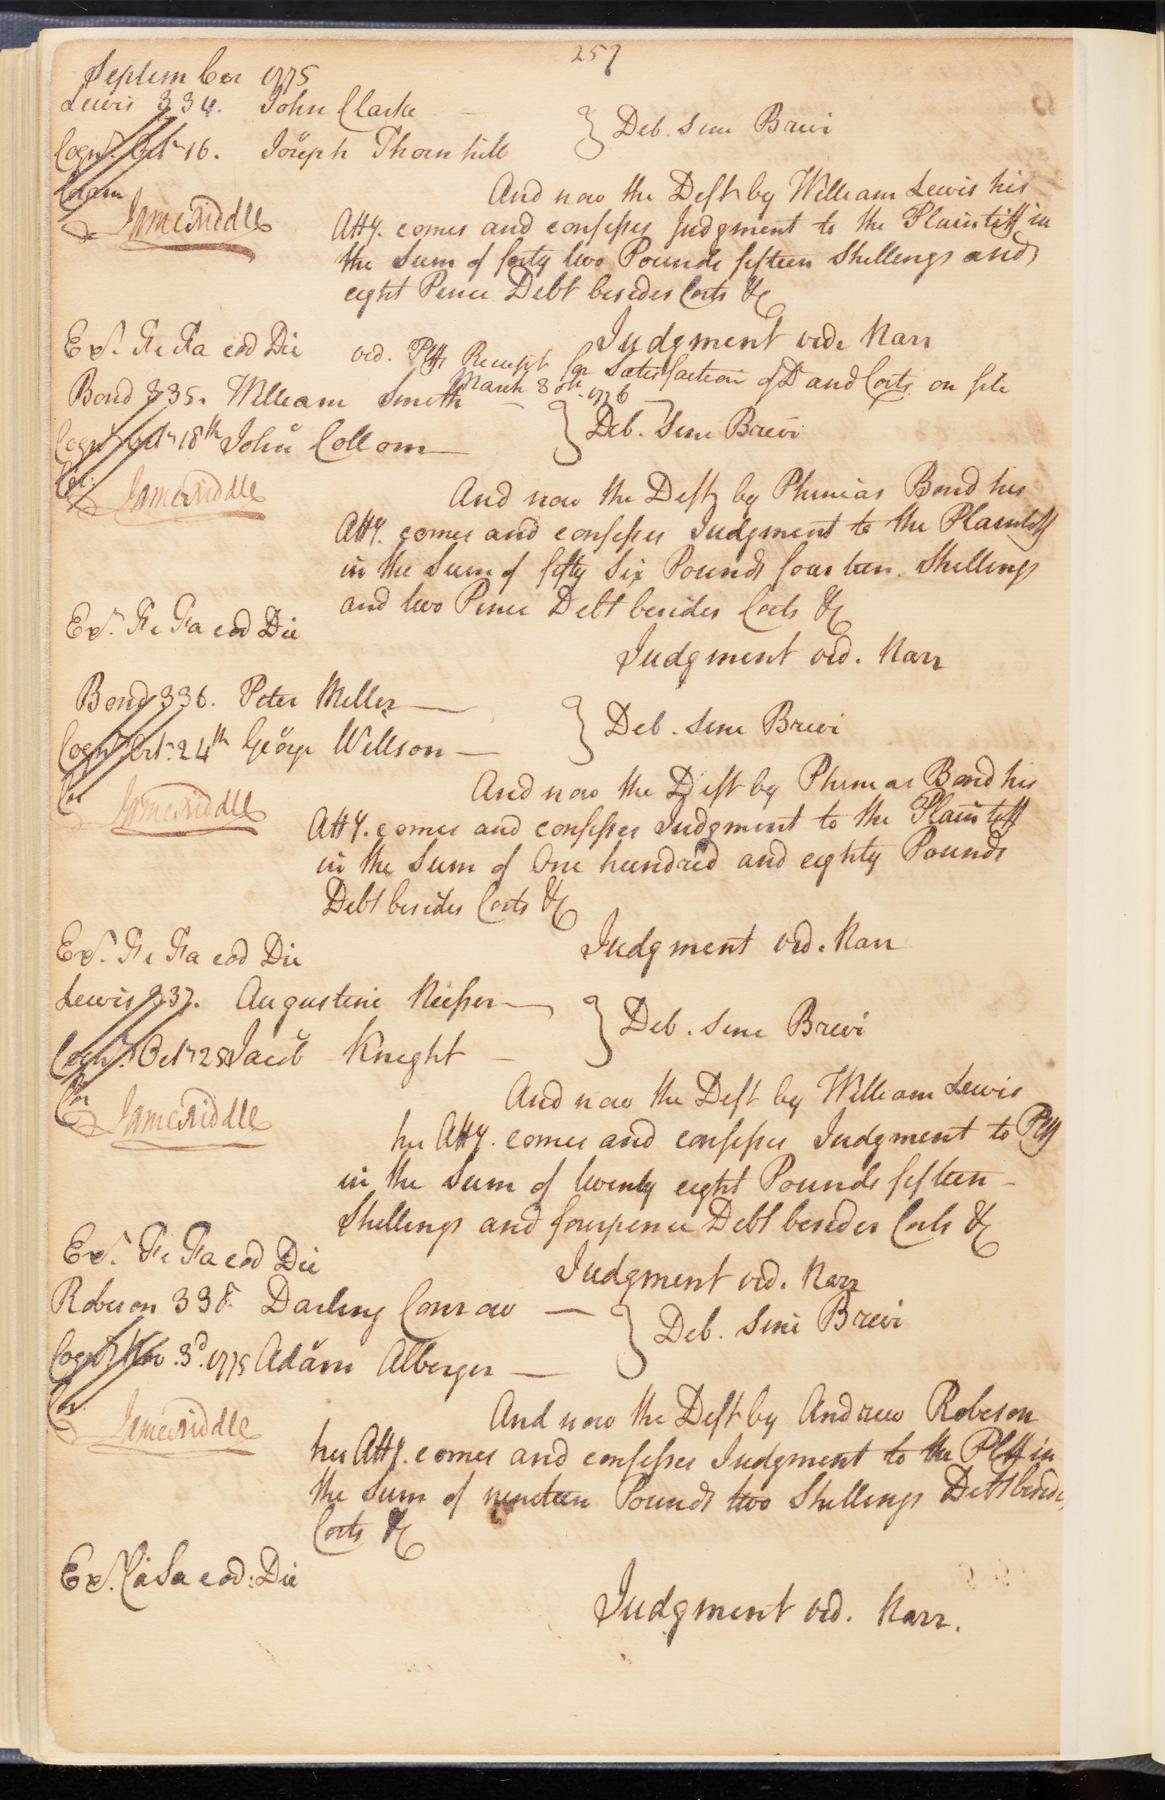 257
September 1775
Lewis 334. John Clarke } Deb. Sine Brevi
Cogn. Octr 16. Joseph Thornhill
Coram
James Riddle
And now the Deft by William Lewis his
Atty. comes and confesses Judgment to the Plaintiff in
the Sum of forty two Pounds fifteen Shillings and
eight Pence Debt besides Costs &c
Judgment vid. Narr
Ex. Fi Fa eod Die
vid. Plffs Receipt for Satisfaction of D and Costs on file
March 30th 1776
Bond 335. William Smith } Deb. Sine Brevi
Cogn. Octr 18th John Collom
Cor.
James Riddle
And now the Deft by Phineas Bond his
Atty. comes and confesses Judgment to the Plaintiff
in the Sum of fifty Six Pounds fourteen Shillings
and two Pence Debt besides Costs &c
Ex. Fi Fa eod Die
Judgment vid. Narr
Bond 336. Peter Miller } Deb. Sine Brevi
Cogn. Octr. 24th George Willson
Cor
James Riddle
And now the Deft by Phineas Bond his
Atty. comes and confesses Judgment to the Plaintiff
in the Sum of One hundred and eighty Pounds
Debt besides Costs &c
Ex. Fi Fa eod Die
Judgment vid. Narr
Lewis 337. Augustine Neisser } Deb. Sine Brevi
Cogn. Octr 28 Jacob Knight
Cor
James Riddle
And now the Deft by William Lewis
his Atty. comes and confesses Judgment to Plff
in the Sum of twenty eight Pounds fifteen
Shillings and fourpence Debt besides Costs &c
Ex. Fi Fa eod Die
Judgment vid. Narr
Robeson 338. Darling Conrow } Deb. Sine Brevi
Cogn. Nov. 3d. 1775 Adam Alberger
Cor.
James Riddle
And now the Deft by Andrew Robeson
his Atty. comes and confesses Judgment to the Plff in
the Sum of nineteen Pounds two Shillings Debt besides
Costs &c
Ex. Ca Sa eod: Die
Judgment vid. Narr.